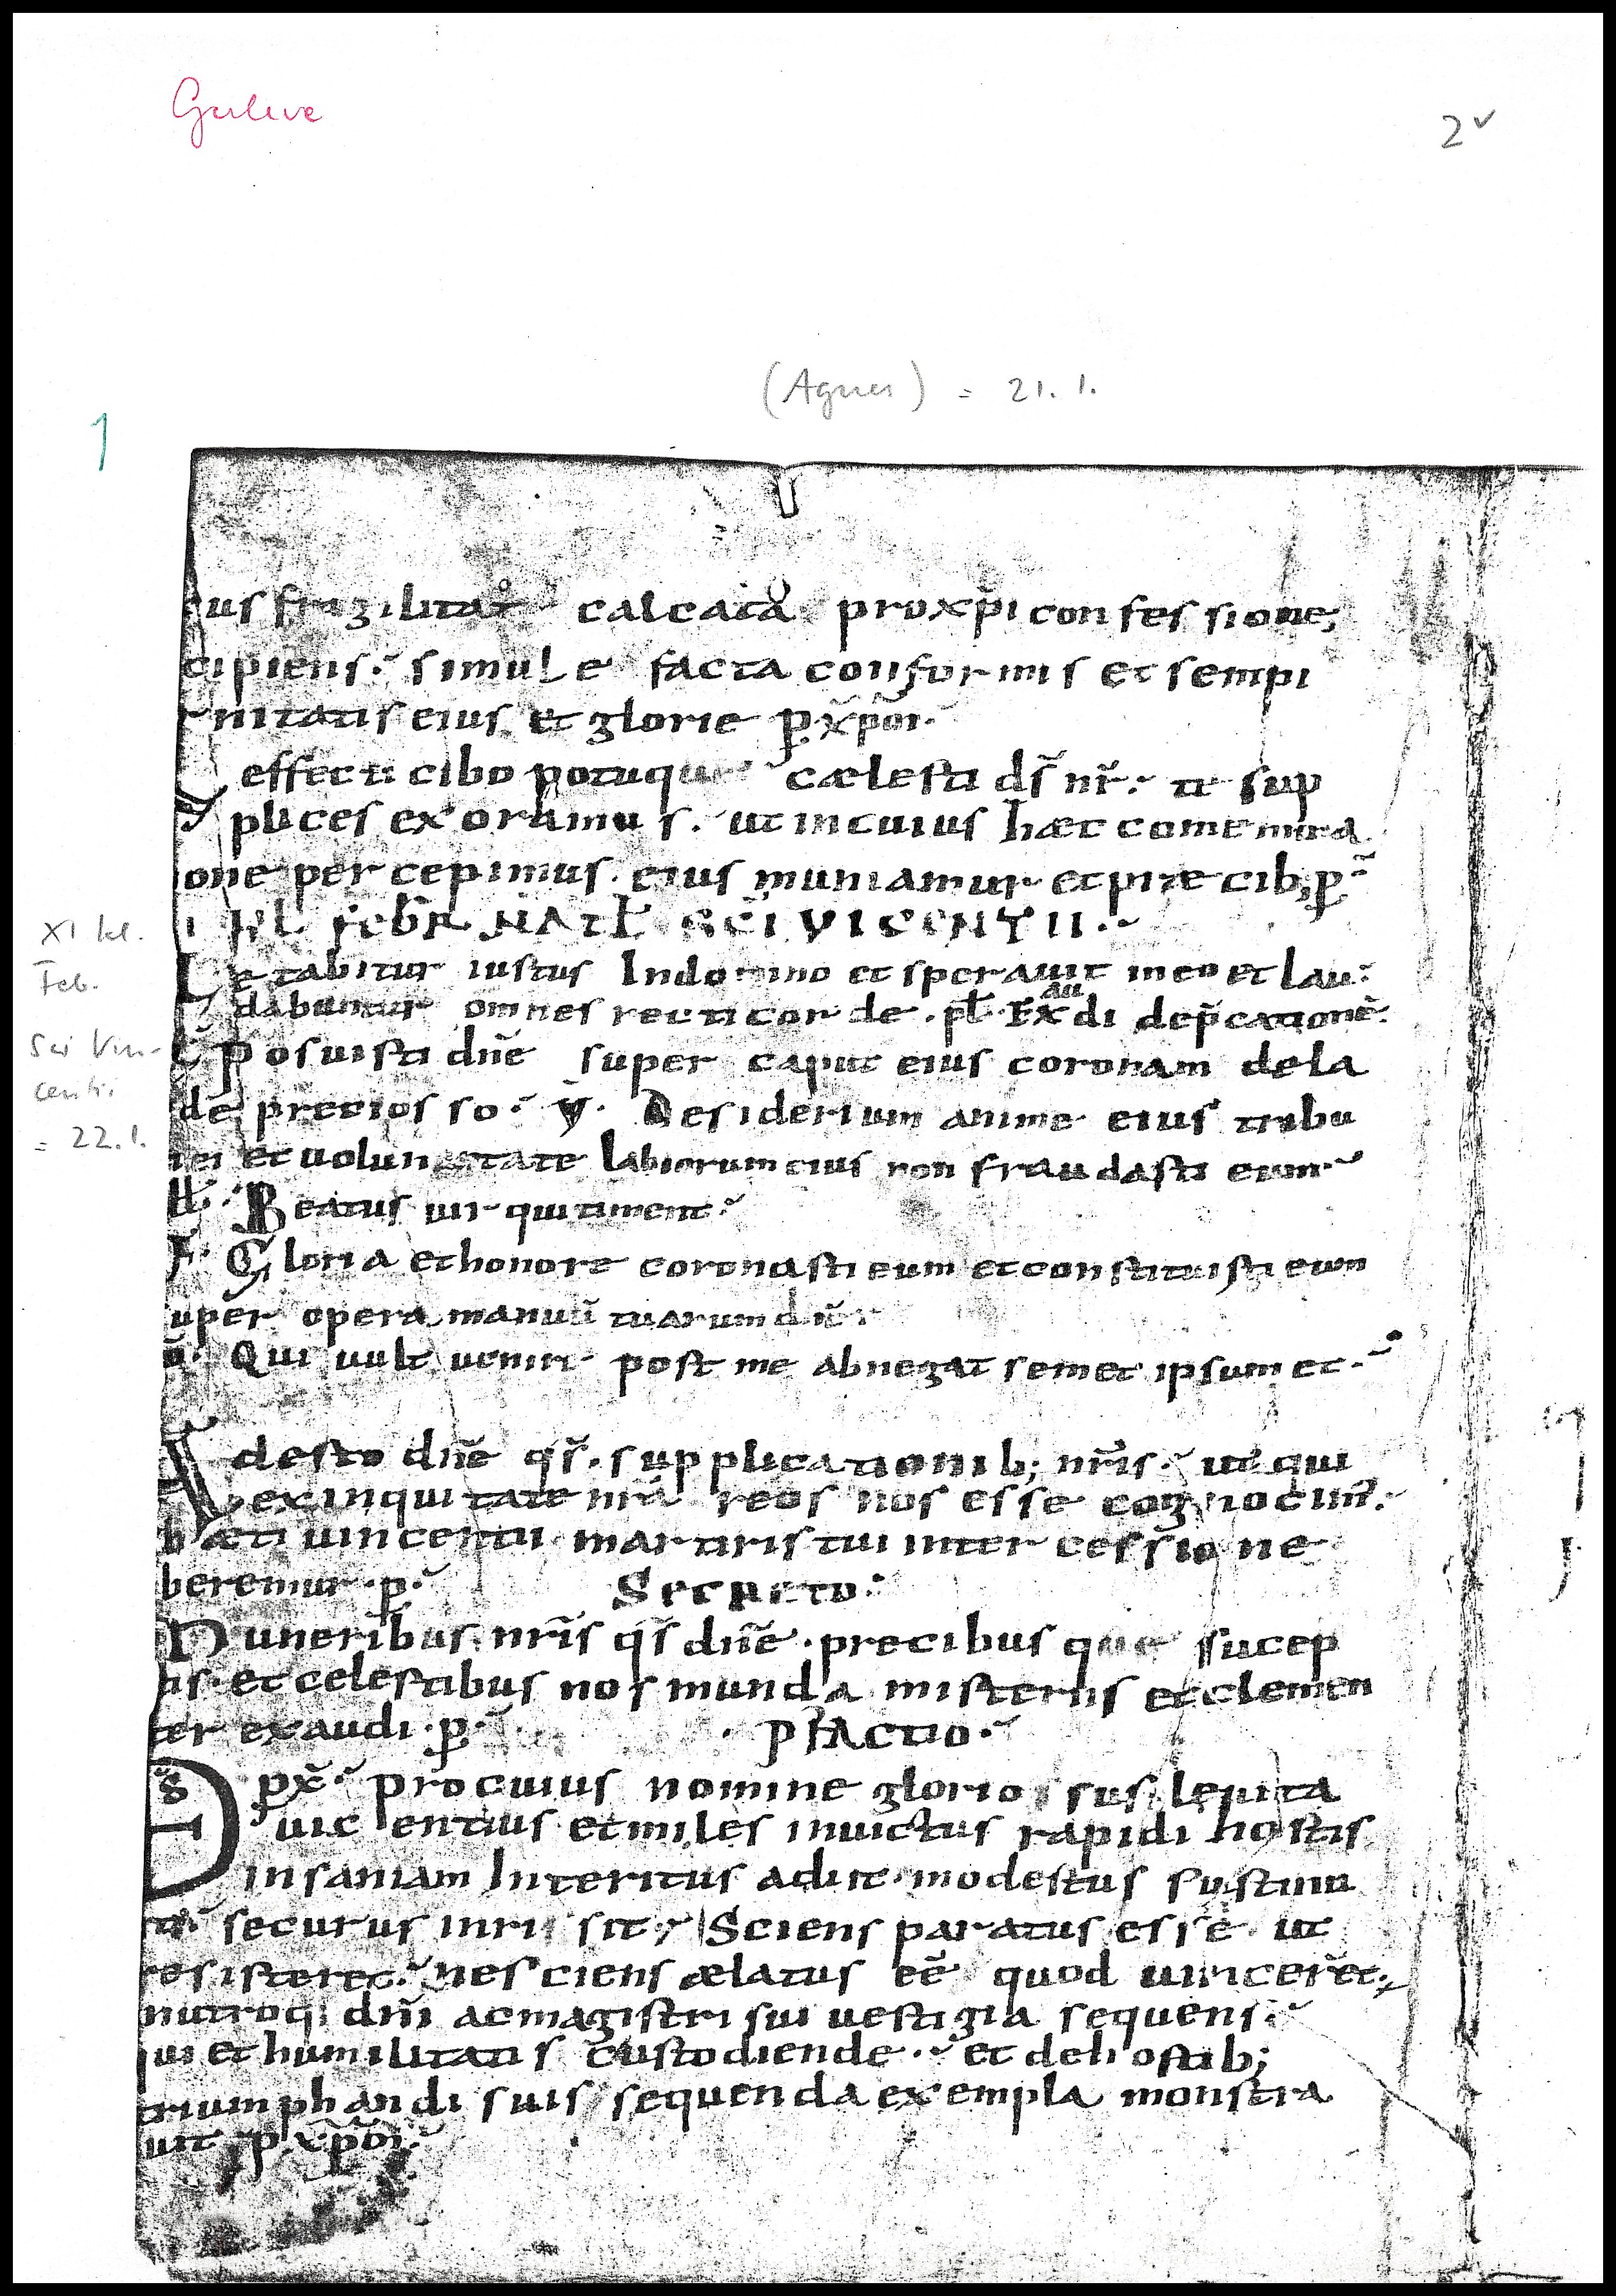 2v
(Agnes) = 21. 1.
1
us fragilitate calcata pro xp̄i confessione;
cipiens. simul e facta conformis et sempi
rnitatis eius et glorie p. xp̄m.
effecti cibo potuque cælesti ds̄ nr̄. te sup
plices exoramus. ut in cuius hæc comemora
one percepimus. eius muniamur et præcib; p̄
kl febr̄ NATL̄ SC̄I VICENTII.
XI kl.
Feb.
Letabitur iustus In domino et sperauit in eo et lau
dabuntur omnes recti corde. ps̄l. Exaudi dep̄cationē
Sci Vin-
centi.
= 22. 1.
Posuisti dn̄e super caput eius coronam de la
de precios so. v̄. Desiderium anime eius tribu
ei et uolun tate labiorum eius non fraudasti eum
Beatus uir qui timent
Gloria et honore coronasti eum et constituisti eum
uper opera manuū tuarum dn̄e
Qui uult uenire post me abnegat semet ipsum et
Adesto dn̄e qs̄. supplicationib; nr̄is. ut qui
ex inquitate nr̄a reos nos esse cognocim̄.
bæti uincentii martiris tui intercessione
beremur. p̄. Secreto.
Muneribus nr̄is qs̄ dn̄e. precibus que sucep
is. et celestibus nos munda misteriis et clemen
ter exaudi. p̄. PFACTIO.
px̄. pro cuius nomine gloriossus leuita
uicentius et miles inuictus rapidi hostis
insaniam Interitus adiit. modestus sustinu
it. securus inrisit; Sciens paratus esse. ut
resisteret. nesciens ælatus eē quod uinceret.
nutroq; dn̄i ac magistri sui uestigia sequens.
ui et humilitatis custodiende. et de hostib;
triumphandi suis sequenda exempla monstra
uit. p. xp̄m